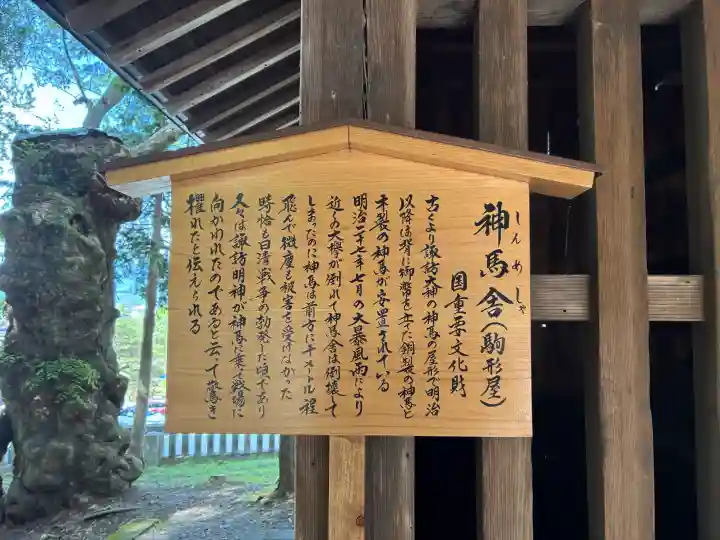 神馬舎(駒形屋)
しんめしゃ
国重要文化財
古くより諏訪大神の神馬の屋形で明治
以降は背に御幣を立てた銅製の神馬と
木製の神馬が安置されている
明治二十七年七月の大暴風雨により
近くの大欅が倒れて神馬舎は倒壊して
しまったのに神馬は前方に千メートル程
飛んで微塵も被害を受けなかった
時恰も日清戦争の勃発した頃であり
人々は諏訪明神が神馬に乗て戦場に
向かわれたのであると云って驚き
擢れたと伝えられる